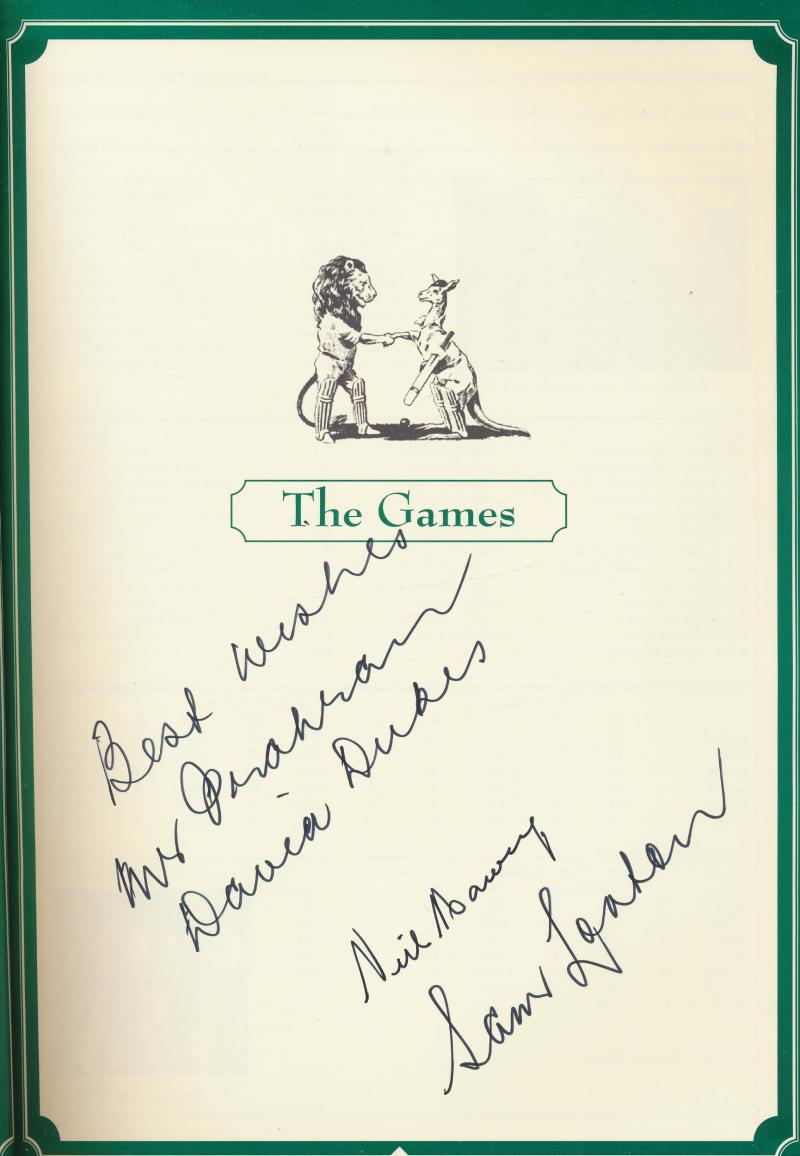 The Games
Best wishes
Mr Prahran
David Dukes
Neil Harvey
Sam Loxton